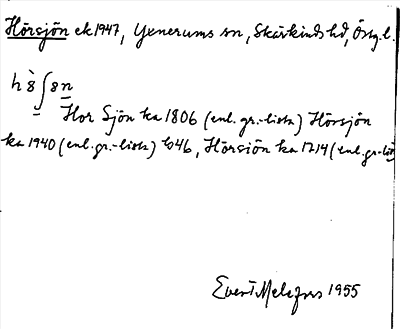 Hörsjön ek 1947, Yxnerums sn, Skärkinds hd, Östg.l.
h 8̀ ʃ 8n
Hor Sjön ka 1806 (enl. gr.-lista) Hörsjön
ka 1940 (enl. gr.-lista) b46, Hörsiön ka 1714 (enl. gr-list
Evert Melefors 1955